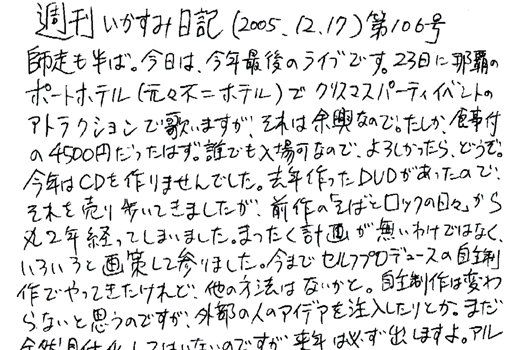 週刊いかすみ日記(2005.12.17)第106号
師走も半ば。今日は、今年最後のライブです。23日に那覇の
ポートホテル(元々不二ホテル)でクリスマスパーティイベントの
アトラクションで歌いますが、それは余興なので。たしか、食事付
の4500円だったはず。誰でも入場可なので、よろしかったら、どうぞ。
今年はCDを作りませんでした。去年作ったDVDがあったので、
それを売り歩いてきましたが、前作の「そばとロックの日々」から
丸2年経ってしまいました。まったく計画が無いわけではなく、
いろいろと画策して参りました。今までセルフプロデュースの自主制
作でやってきたけれど、他の方法はないかと。自主制作は変わ
らないと思うのですが、外部の人のアイデアを注入したりとか。まだ
全然具体化してはいないのですが来年は必ず出しますよ。アル